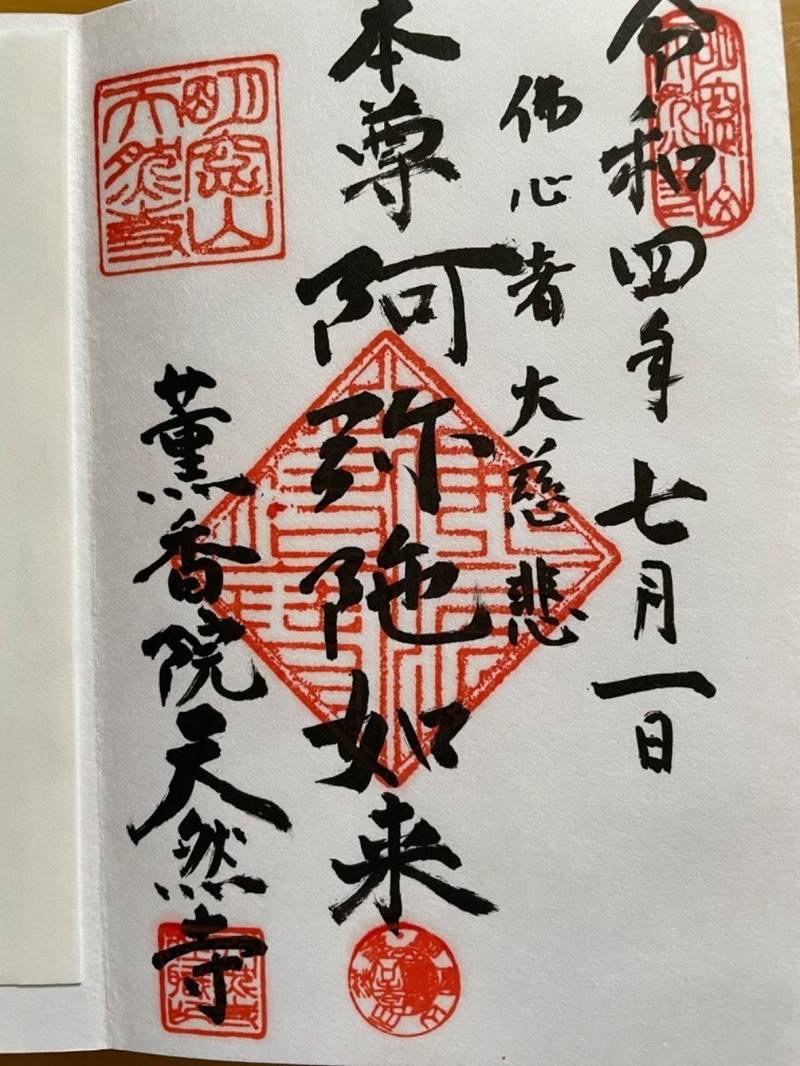 令和四年七月一日
佛心者大慈悲
本尊阿弥陀如来
薫香院天然寺